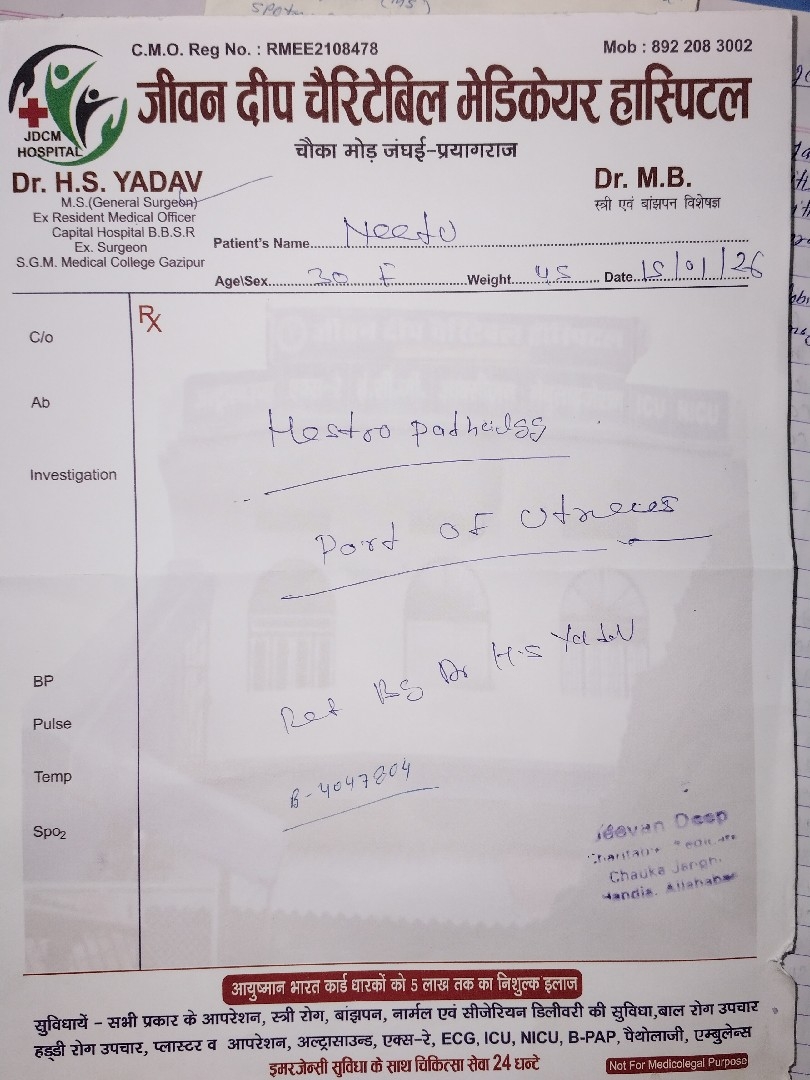 C.M.O. Reg No. : RMEE2108478
Mob : 892 208 3002
जीवन दीप चैरिटेबिल मेडिकेयर हास्पिटल
JDCM
HOSPITAL
चौका मोड़ जंघई-प्रयागराज
Dr. H.S. YADAV
M.S.(General Surgeon)
Ex Resident Medical Officer
Capital Hospital B.B.S.R
Ex. Surgeon
S.G.M. Medical College Gazipur
Dr. M.B.
स्त्री एवं बांझपन विशेषज्ञ
Patient's Name. Neetu
Age\Sex. 30 F Weight. 45 Date. 15/01/26
Rx
C/o
Ab
Investigation
Hestro
Part OF
Ref By Dr H.S Yadav
B-4047804
BP
Pulse
Temp
Spo2
Jeevan Deep
Chauka Jangh
Handia. Allahabad
आयुष्मान भारत कार्ड धारकों को 5 लाख तक का निशुल्क इलाज
सुविधायें – सभी प्रकार के आपरेशन, स्त्री रोग, बांझपन, नार्मल एवं सीजेरियन डिलीवरी की सुविधा,बाल रोग उपचार
हड्डी रोग उपचार, प्लास्टर व आपरेशन, अल्ट्रासाउन्ड, एक्स-रे, ECG, ICU, NICU, B-PAP, पैथोलाजी, एम्बुलेन्स
इमरजेन्सी सुविधा के साथ चिकित्सा सेवा 24 घन्टे
Not For Medicolegal Purpose